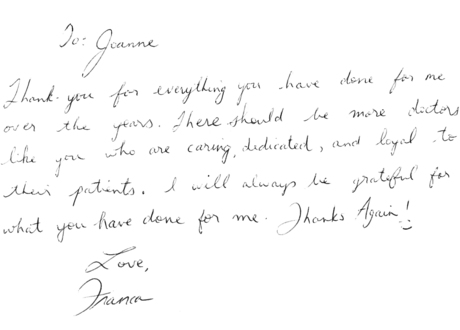 To: Joanne
Thank you for everything you have done for me
over the years. There should be more doctors
like you who are caring, dedicated, and loyal to
their patients. I will always be grateful for
what you have done for me. Thanks Again!!
Love,
Franca